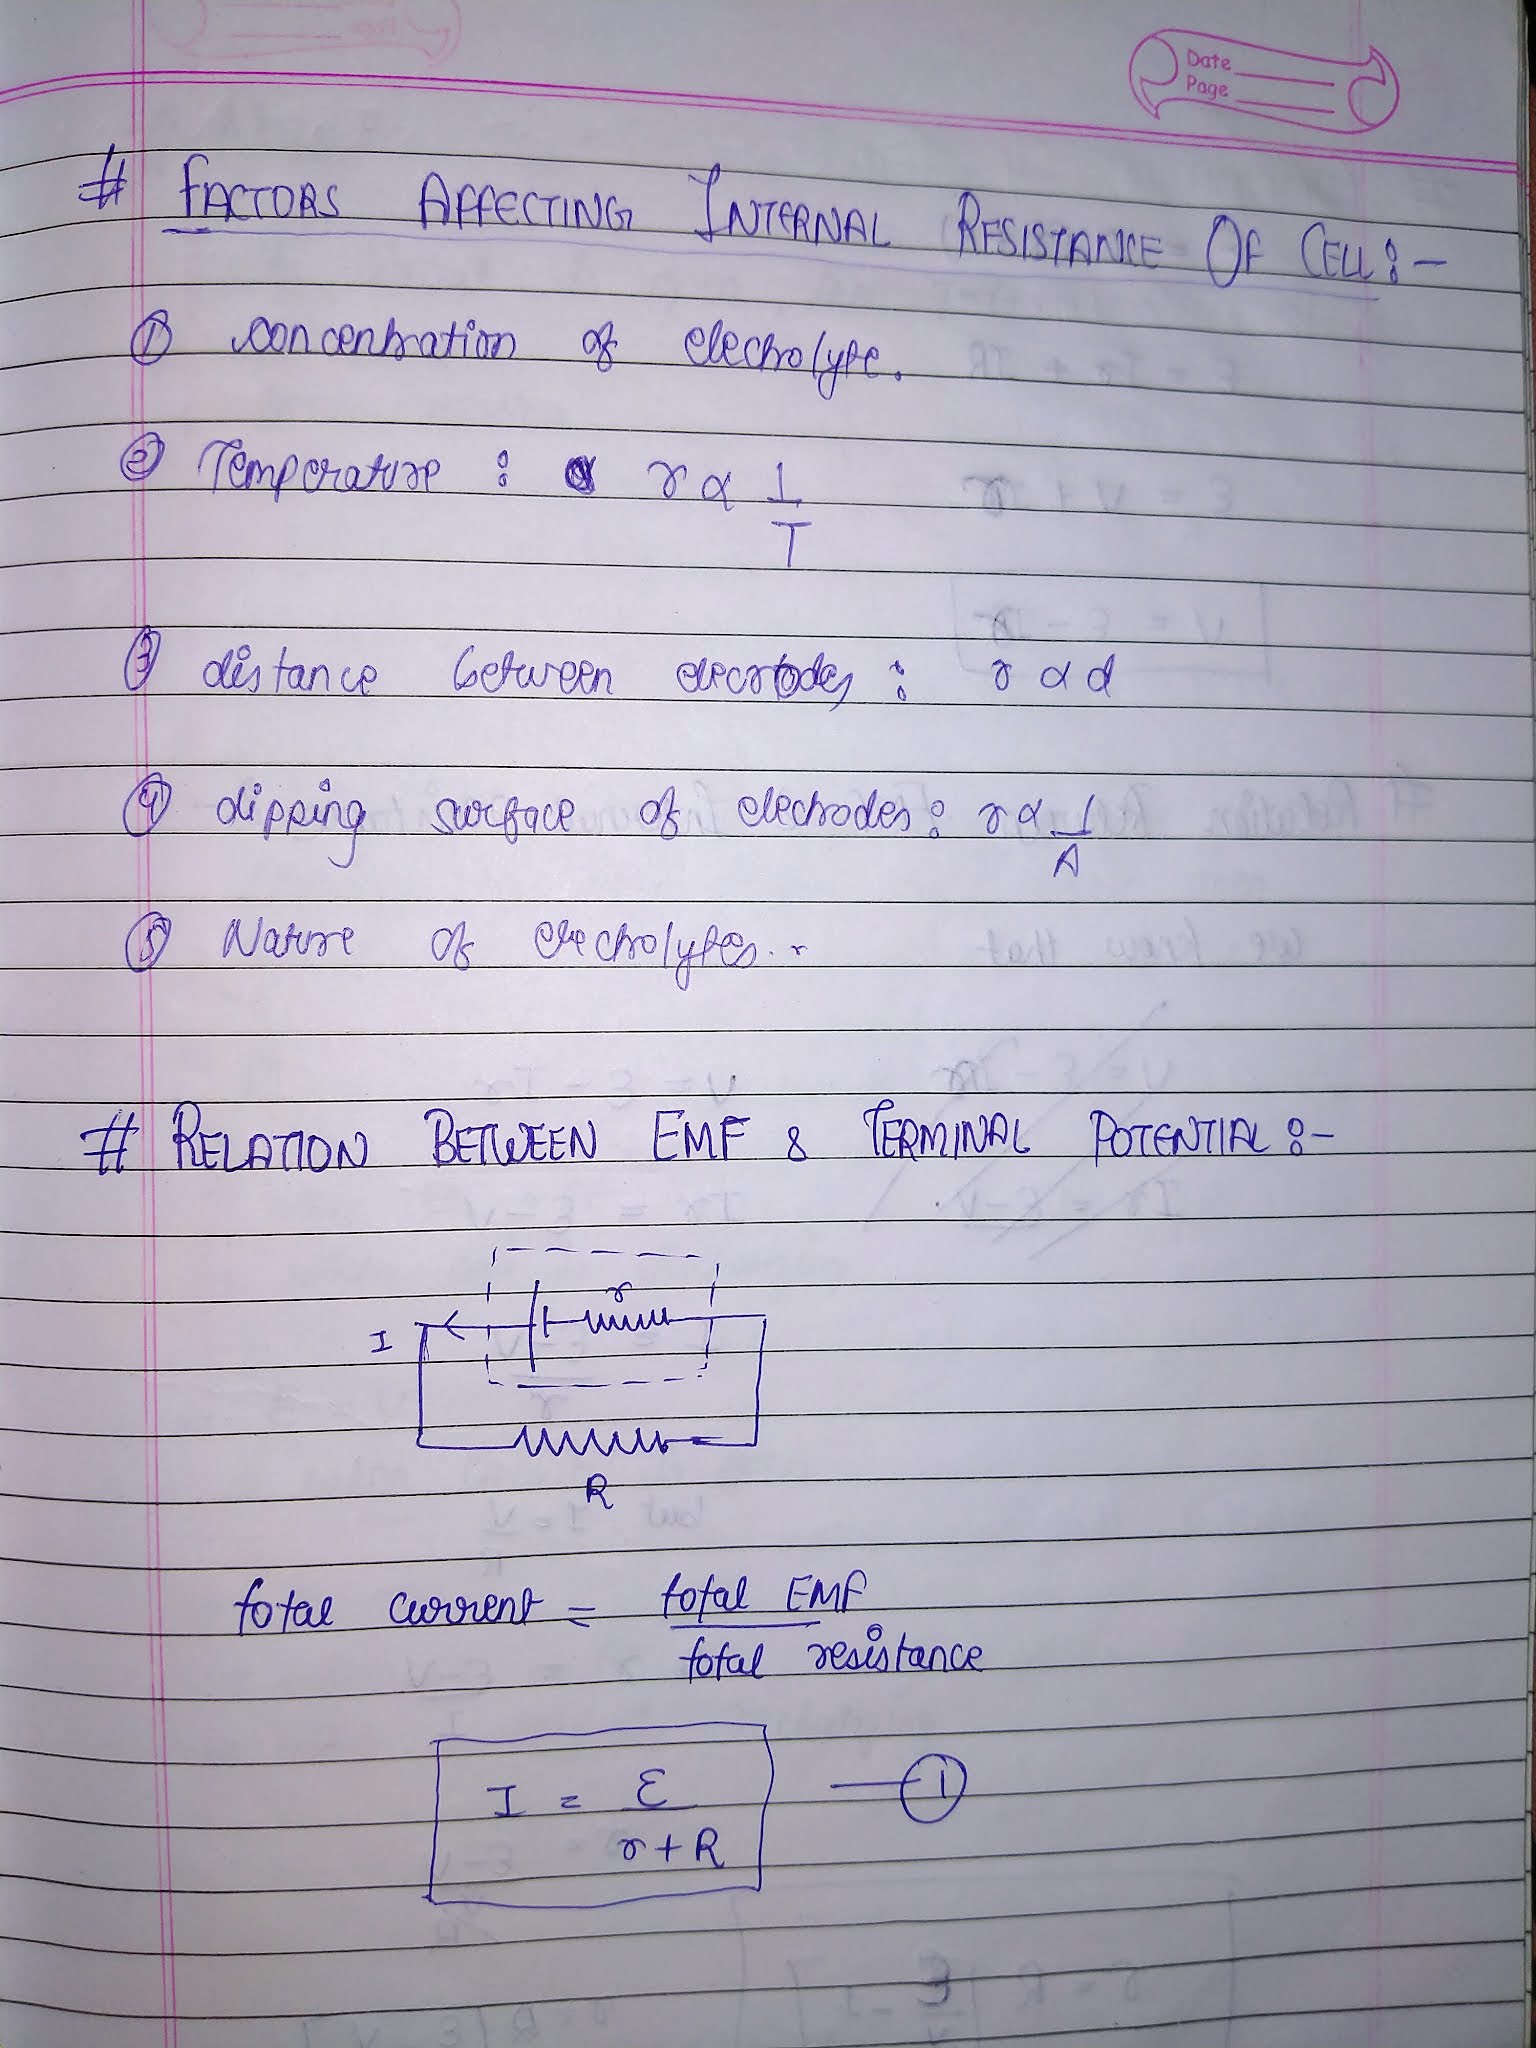 Date
Page
# FACTORS AFFECTING INTERNAL RESISTANCE OF CELL :-
① concentration of electrolyte.
② Temperature : r ∝ 1/T
③ distance between elecrtodes : r ∝ d
④ dipping surface of electrodes : r ∝ 1/A
⑤ Nature of electrolytes..
# RELATION BETWEEN EMF & TERMINAL POTENTIAL :-
r
I
R
total current = total EMF / total resistance
I = ε / r + R —①